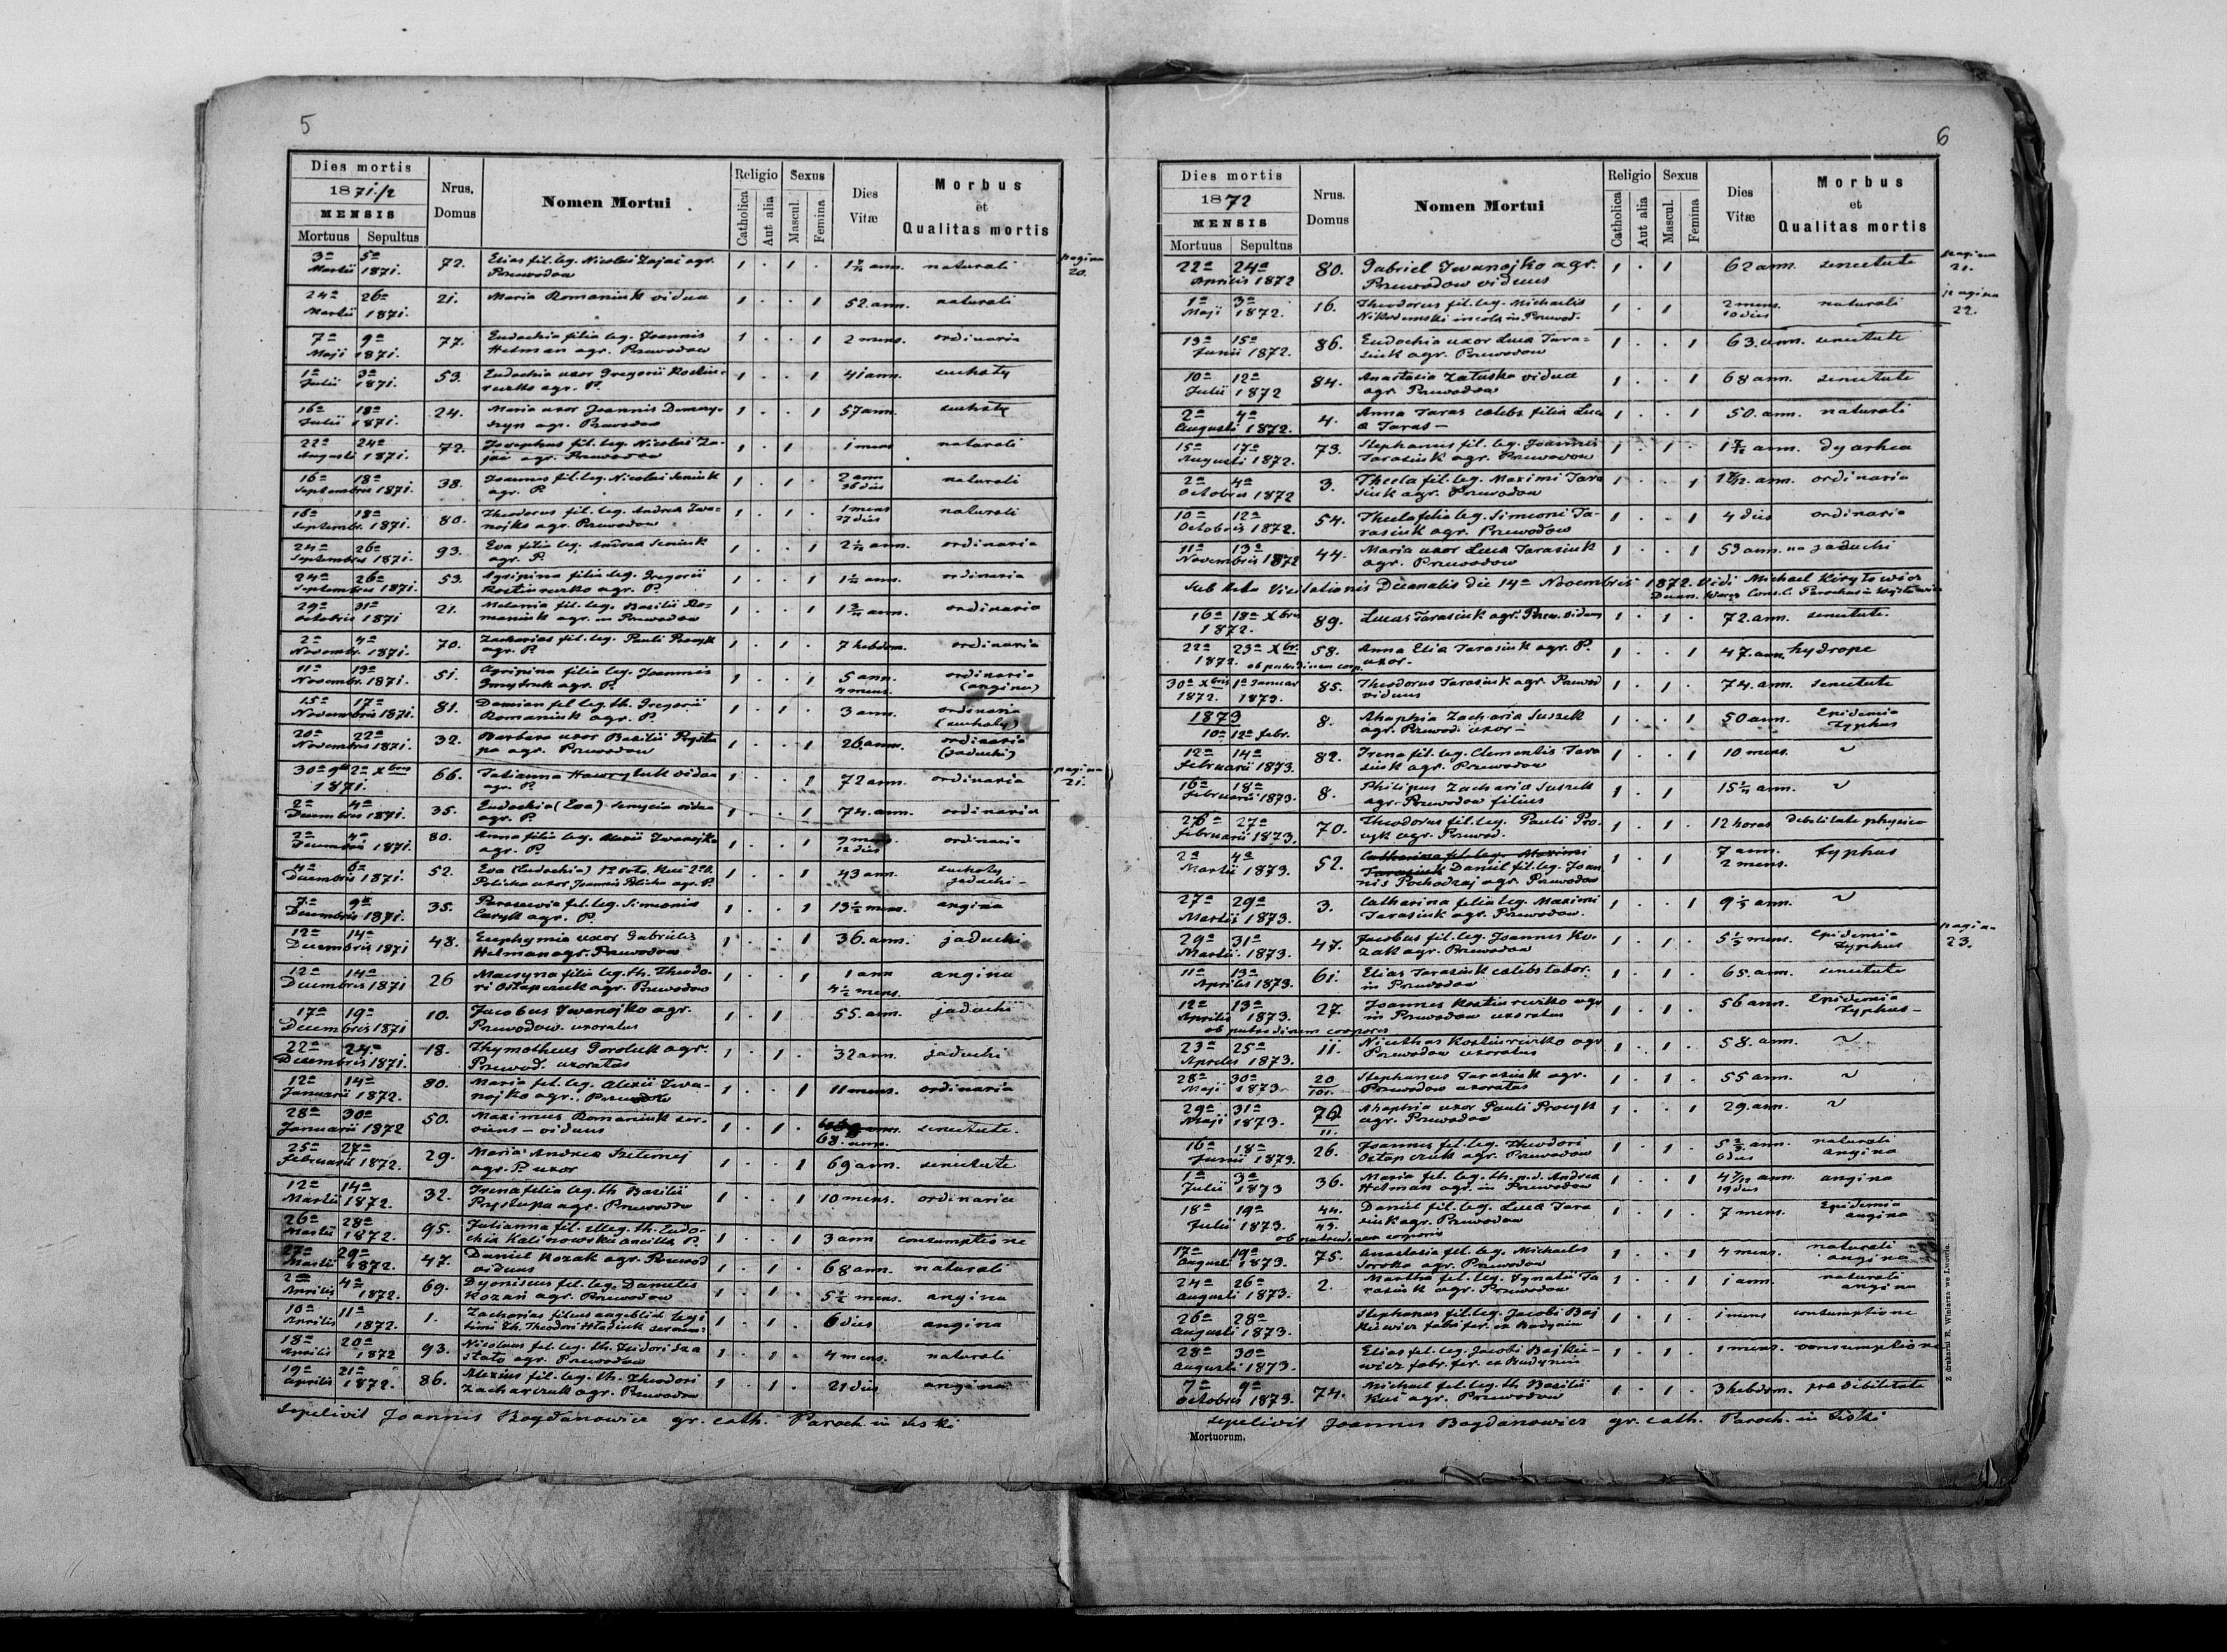 5
Dies mortis
1871/2
MENSIS
Mortuus Sepultus
Nrus. Domus
Nomen Mortui
Religio
Catholica
Aut alia
Sexus
Mascul.
Femina
Dies Vitæ
Morbus et Qualitas mortis
3a 5a 72. Elias fil. leg. Nicolai Zajac agr. 1 . 1 . ann. naturali pagina 20.
Martii 1871. Przewodow
24a 26a 21. Maria Romaniuk vidua 1 . . 1 52. ann. naturali
Martii 1871.
7a 9a 77. Eudochia filia leg. Joannis 1 . . 1 2 mens. ordinaria
Maji 1871. Hetman agr. Przewodow
1a 3a 53. Eudochia uxor Gregorii Kostiu- 1 . . 1 41 ann. suchoty
Julii 1871. agr. P.
16a 18a 24. Maria uxor Joannis 1 . . 1 57 ann. suchoty
Julii 1871. agr. Przewodow
22a 24a 72. Josephus fil. leg. Nicolai Za- 1 . 1 1 mens naturali
Augusti 1871. jac agr. Przewodow
16a 18a 38. Joannes fil. leg. Nicolai Seniuk 1 . 1 . 2 ann naturali
Septembris 1871. agr. P. dies
16a 18a 80. Theodorus fil. leg. Andreæ Iwa- 1 . 1 . 1 mens naturali
Septembr. 1871. nojko agr. Przewodow 27 dies
24a 26a 93. Eva filia leg. Andreæ Seniuk 1 . . 1 ann. ordinaria
Septembris 1871. agr. P.
24a 26a 53. Agripina filia leg. Gregorii 1 . . 1 ann. ordinaria
Septembris 1871. agr. P.
29a 31a 21. Melania fil. leg. Basilii Ro- 1 . . 1 ann. ordinaria
Octobris 1871 maniuk agr. in Przewodow
2a 4a 70. Zacharias fil. leg. Pauli Procyk 1 . 1 . 7 hebdom. ordinaria
Novembr. 1871. agr. P.
11a 13a 51. Agripina filia leg. Joannis 1 . . 1 5 ann. ordinaria
Novembr. 1871. Dmytruk agr. P. 4 mens. (angina)
15a 17a 81. Damian fil leg. th. Gregorii 1 . 1 . 3 ann. ordinaria
Novembris 1871. Romaniuk agr. P. (suchoty)
20a 22a 32. Barbara uxor Basilii Prystu- 1 . . 1 26 ann. ordinaria
Novembris 1871. pa agr. Przewodow (jaduchi)
30a 9br 2a Xbris 66. Tatianna Hawryluk vidua 1 . . 1 72 ann. ordinaria pagina 21.
1871. agr. P.
2a 4a 35. Eudochia (Eva) vidua 1 . . 1 74. ann. ordinaria
Decembris 1871. agr. P.
2a 4a 80. Anna filia leg. Alexii Iwanojko 1 . . 1 9 mens. ordinaria
Decembris 1871. agr. P. 12 dies
4a 6a 52. Eva (Eudochia) 1o voto 2do 1 . . 1 43 ann. suchoty
Decembris 1871. uxor Joannis agr. P. jaduchi -
7a 9a 35. Parascevia fil. leg. Simeonis 1 . . 1 13 1/2 mens. angina
Decembris 1871. agr. P.
12a 14a 48. Euphymia uxor Gabrielis 1 . . 1 36. ann. jaduchi
Decembris 1871 Hetman agr. Przewodow
12a 14a 26 Macryna filia leg. th. Theodo- 1 . 1 1 ann angina
Decembris 1871 ri Ostapczuk agr. Przewodow 4 1/2 mens.
17a 19a 10. Jacobus Iwanojko agr. 1 . 1 55. ann. jaduchi
Decembris 1871 Przewodow. uxoratus
22a 24a 18. Thymotheus agr. 1 . 1 . 32 ann. jaduchi
Decembris 1871. Przewod. uxoratus
12a 14a 80. Maria fil. leg. Alexii Iwa- 1 . 1 11 mens. ordinaria
Januarii 1872. nojko agr. Przewodow
28a 30a 50. Maximus Romaniuk ser- 1 . 1 . 68. ann. senectute.
Januarii 1872 viens - viduus
25a 27a 29. Maria Andreæ 1 . . 1 69 ann. senectute
Februarii 1872. agr. P. uxor
12a 14a 32. Irena filia leg. th Basilii 1 . . 1 10 mens. ordinaria
Martii 1872. Prystupa agr. Przewodow
26a 28a 95. Julianna fil. illeg. th. Eudo- 1 . . 1 3 ann consumptione
Martii 1872. chiæ Kalinowska ancilla P.
27a 29a 47. Daniel Kozak agr. Przewod 1 . 1 . 68 ann. naturali
Martii 1872. viduus
2a 4a 69. Dyonisius fil. leg. Danielis 1 . 1 . 5 1/2 mens. angina
Aprilis 1872. Kozak agr. Przewodow
10a 11a 1. Zacharias filius legi 1 . 1 . 6 dies angina
Aprilis 1872. timi th. Theodori Hladiuk
18a 20a 93. Nicolaus fil. leg. th. Isidori 1 . 1 . 4 mens. naturali
Aprilis 1872 agr. Przewodow
19a 21a 86. Alexius fil. leg. th. Theodori 1 . 1 . 21 dies angina
Aprilis 1872. Zacharczuk agr. Przewodow
Sepelivit Joannes Bogdanowicz gr. cath. Paroch in Liski
6
Dies mortis
1872
MENSIS
Mortuus Sepultus
Nrus. Domus
Nomen Mortui
Religio
Catholica
Aut alia
Sexus
Mascul.
Femina
Dies Vitæ
Morbus et Qualitas mortis
22a 24a 80. Gabriel Iwanojko agr. 1 . 1 62 ann. senectute pagina 21.
Aprilis 1872 Przewodow viduus
1a 3a 16. Theodorus fil. leg. Michaelis 1 . 1 2 mens. naturali pagina 22.
Maji 1872. Nikodemski incola in Przewod. 10 dies
13a 15a 86. Eudochia uxor Lucæ Tara= 1 . . 1 63. ann. senectute
Junii 1872. siuk agr. Przewodow
10a 12a 84. Anastasia Załuska vidua 1 . . 1 68 ann. senectute
Julii 1872 agr. Przewodow
2a 4a 4. Anna Taras cælebs filia Luc 1 . . 1 50. ann. naturali
Augusti 1872. æ Taras -
15a 17a 73. Stephanus fil. leg. Joannis 1 . 1 . ann. dyarhea
Augusti 1872. Tarasiuk agr. Przewodow
2a 4a 3. Thecla fil. leg. Maximi Tara 1 . . 1 ann. ordinaria
Octobris 1872 siuk agr. Przewodow
10a 12a 54. Thecla filia leg. Simeoni Ta- 1 . . 1 4 dies ordinaria
Octobris 1872. rasiuk agr. Przewodow
11a 13a 44. Maria uxor Lucæ Tarasiuk 1 . . 1 53 ann. na jaduchi
Novembris 1872 agr. Przewodow
Sub Actu Visitationis Decanalis die 14a Novembris 1872. Vidi Michael Kiryłowicz
Decan. Cons. C. Parochus in
16a 18a Xbris 89. Lucas Tarasiuk agr. Przew. viduus 1 . 1 . 72. ann. senectute.
1872.
22a 23a Xbr. 58. Anna Elia Tarasiuk agr. P. 1 . . 1 47. ann. hydrope
1872. ob putredinem corp. uxor.
30a Xbris 1a Januar 85. Theodorus Tarasiuk agr. Przewod 1 . 1 . 74. ann. senectute
1872. 1873. viduus
1873 8. Ahaphia Zacharia Suszek 1 . . 1 50 ann. Epidemia
10a 12a febr. agr. Przewod. uxor - Typhus
12a 14a 82. Irena fil. leg. Clementis Tara 1 . . 1 10 mens. ~
Februarii 1873. siuk agr. Przewodow
16a 18a 8. Philipus Zacharia Suszek 1 . 1 ann. ~
Februarii 1873. agr. Przewodow filius
26a 27a 70. Theodorus fil. leg. Pauli Pro- 1 . 1 . 12 horas debilitate physica
Februarii 1873. cyk agr. Przewod.
2a 4a 52. Catharina fil. leg. Maximi 1 . 1 7 ann. typhus
Martii 1873. Tarasiuk Daniel fil. leg. Joan 2 mens.
nis Pochodzaj agr. Przewodow
27a 29a 3. Catharina filia leg. Maximi 1 . . 1 ann. ~
Martii 1873. Tarasiuk agr. Przewodow.
29a 31a 47. Jacobus fil. leg. Joannes Ko- 1 . 1 . mens. Epidemia pagina 23.
Martii 1873. zak agr. Przewodow Typhus
11a 13a 61. Elias Tarasiuk cælebs labor. 1 . 1 . 65. ann. senectute
Aprilis 1873. in Przewodow
12a 13a 27. Joannes agr 1 . 1 . 56 ann. Epidemia
Aprilis 1873. in Przewodow uxoratus Typhus -
ob putredinem corporis
23a 25a 11. Nicethas agr 1 . 1 . 58. ann. ~
Aprilis 1873. Przewodow uxoratus
28a 30a 20/101. Stephanus Tarasiuk agr. 1 . 1 . 55 ann. ~
Maji 1873. Przewodow uxoratus
29a 31a 70/11. Ahaphia uxor Pauli Procyk 1 . . 1 29. ann. ~
Maji 1873. agr. Przewodow
16a 18a 26. Joannes fil. leg. Theodori 1 . 1 . ann. naturali
Junii 1873. Ostapczuk agr. Przewodow 6 dies angina
1a 3a 36. Maria fil. leg. th. Andreæ 1 . . 1 ann. angina
Julii 1873 Hetman agr. in Przewodow 19 dies
18a 19a 44./43. Daniel fil. leg. Lucæ Tara 1 . 1 . 7 mens. Epidemia
Julii 1873. siuk agr. Przewodow angina
ob putredinem corporis
17a 19a 75. Anastasia fil. leg. Michaelis 1 . . 1 4 mens. naturali
Augusti 1873. agr. Przewodow angina
24a 26a 2. Martha fil. leg. Ignatii Ta 1 . . 1 1 ann. naturali
Augusti 1873. rasiuk agr. Przewodow angina
26a 28a Stephanus fil. leg. Jacobi Baj 1 . 1 . 1 mens consumptione
Augusti 1873. kiewicz fabri fer. ex Budynin
28a 30a Elias fil. leg. Jacobi Bajkie- 1 . 1 . 1 mens. consumptione
Augusti 1873. wicz fabr. fer. ex Budynin
7a 9a 74. Michael fil. leg. th Basilii 1 . 1 . 3 hebdom. præ debilitate
Octobris 1873. agr. Przewodow
Sepelivit Joannes Bogdanowicz gr. cath. Paroch. in Liski
Mortuorum.
Z drukarni E. Winiarza we Lwowie.